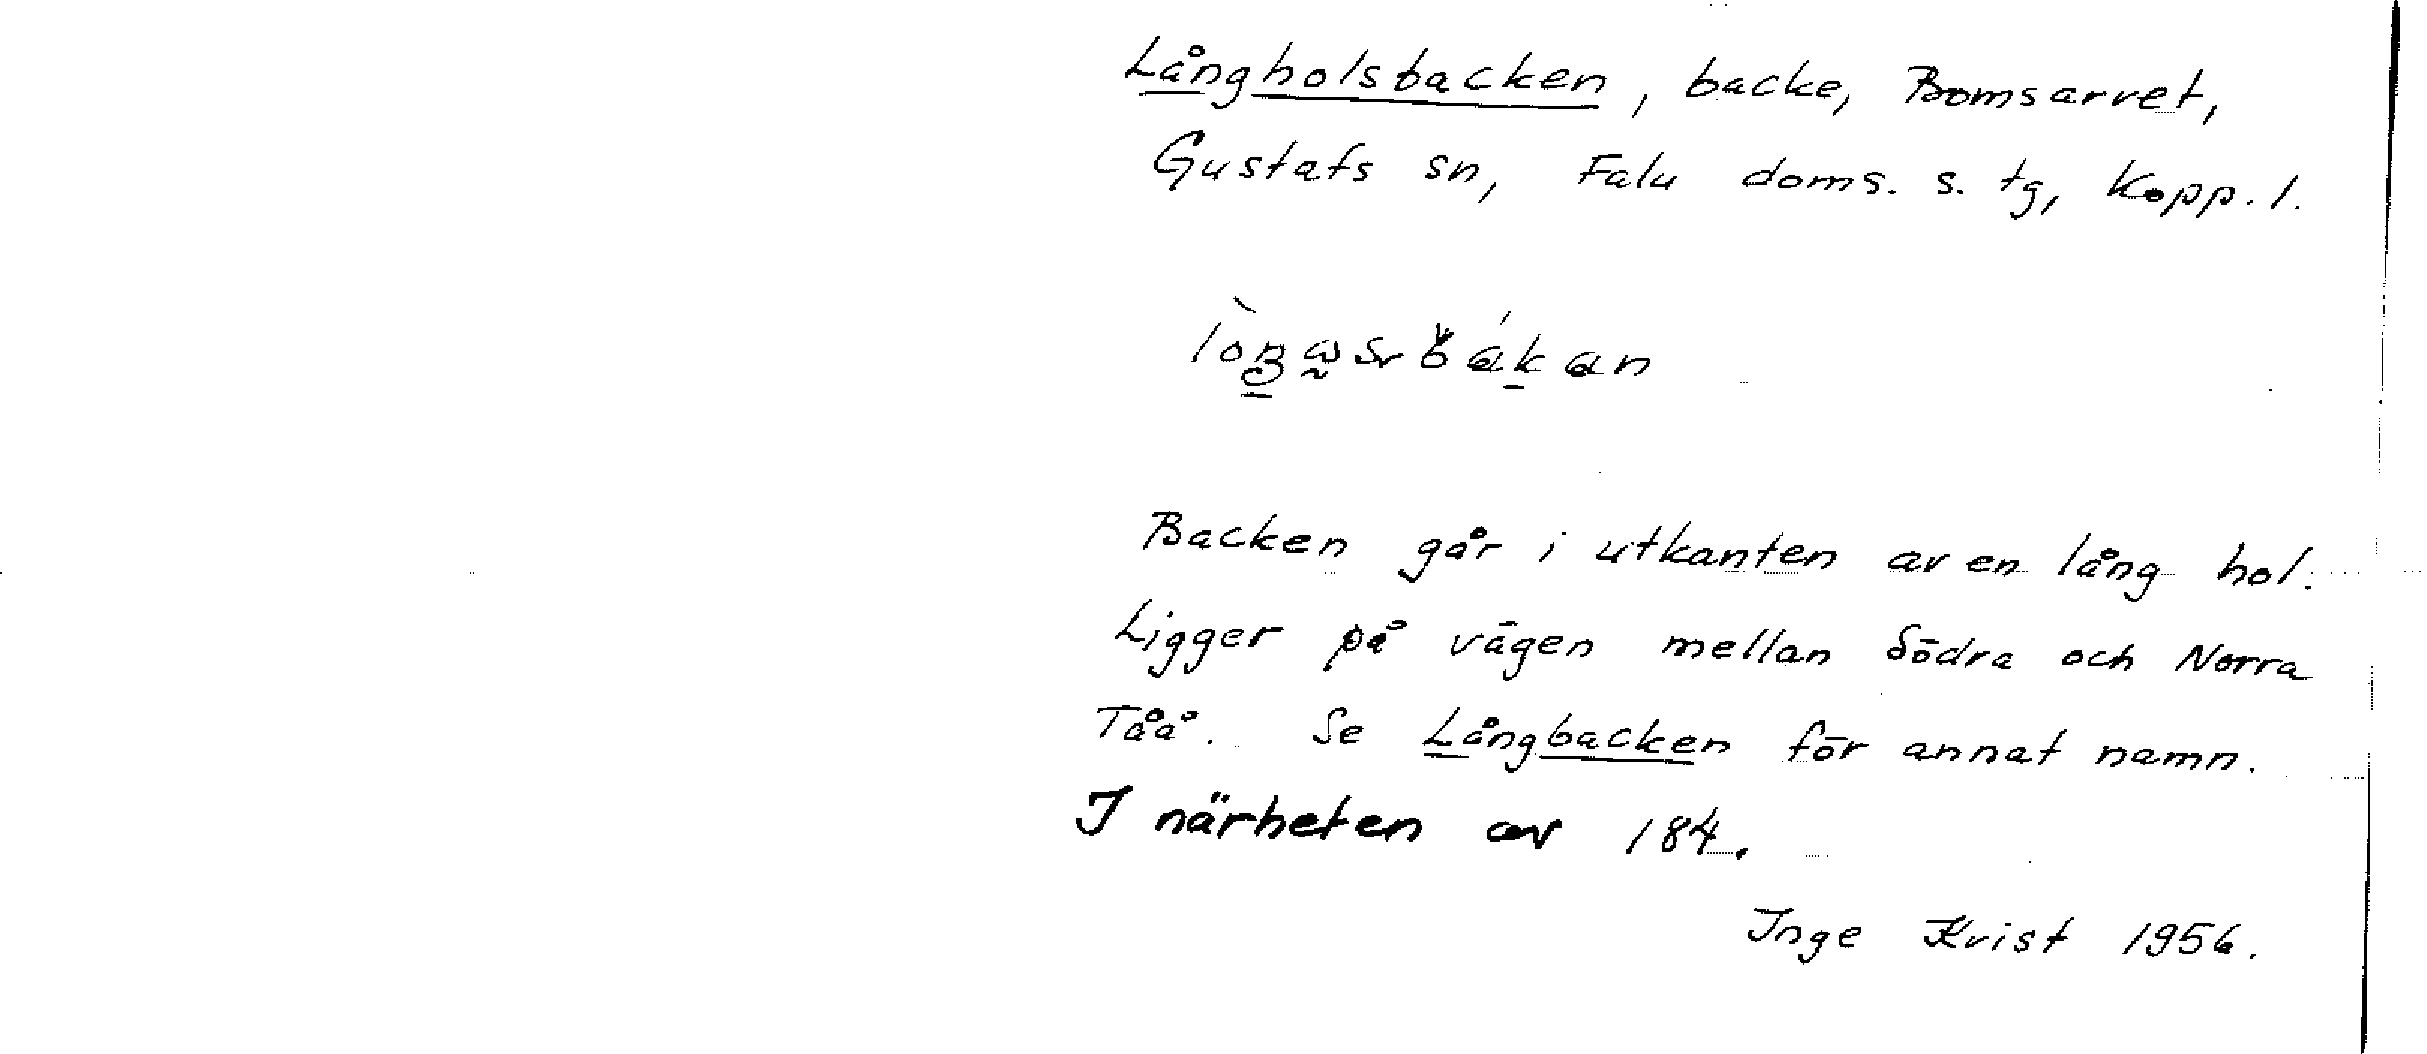 Långholsbacken, backe, Bomsarvet,
Gustafs sn, Falu doms. s. tg, Kopp. l.
Backen går i utkanten av en lång hol.
Ligger på vägen mellan Södra och Norra
Tåå. Se Långbacken för annat namn.
I närheten av 184.
Inge Kvist 1956.